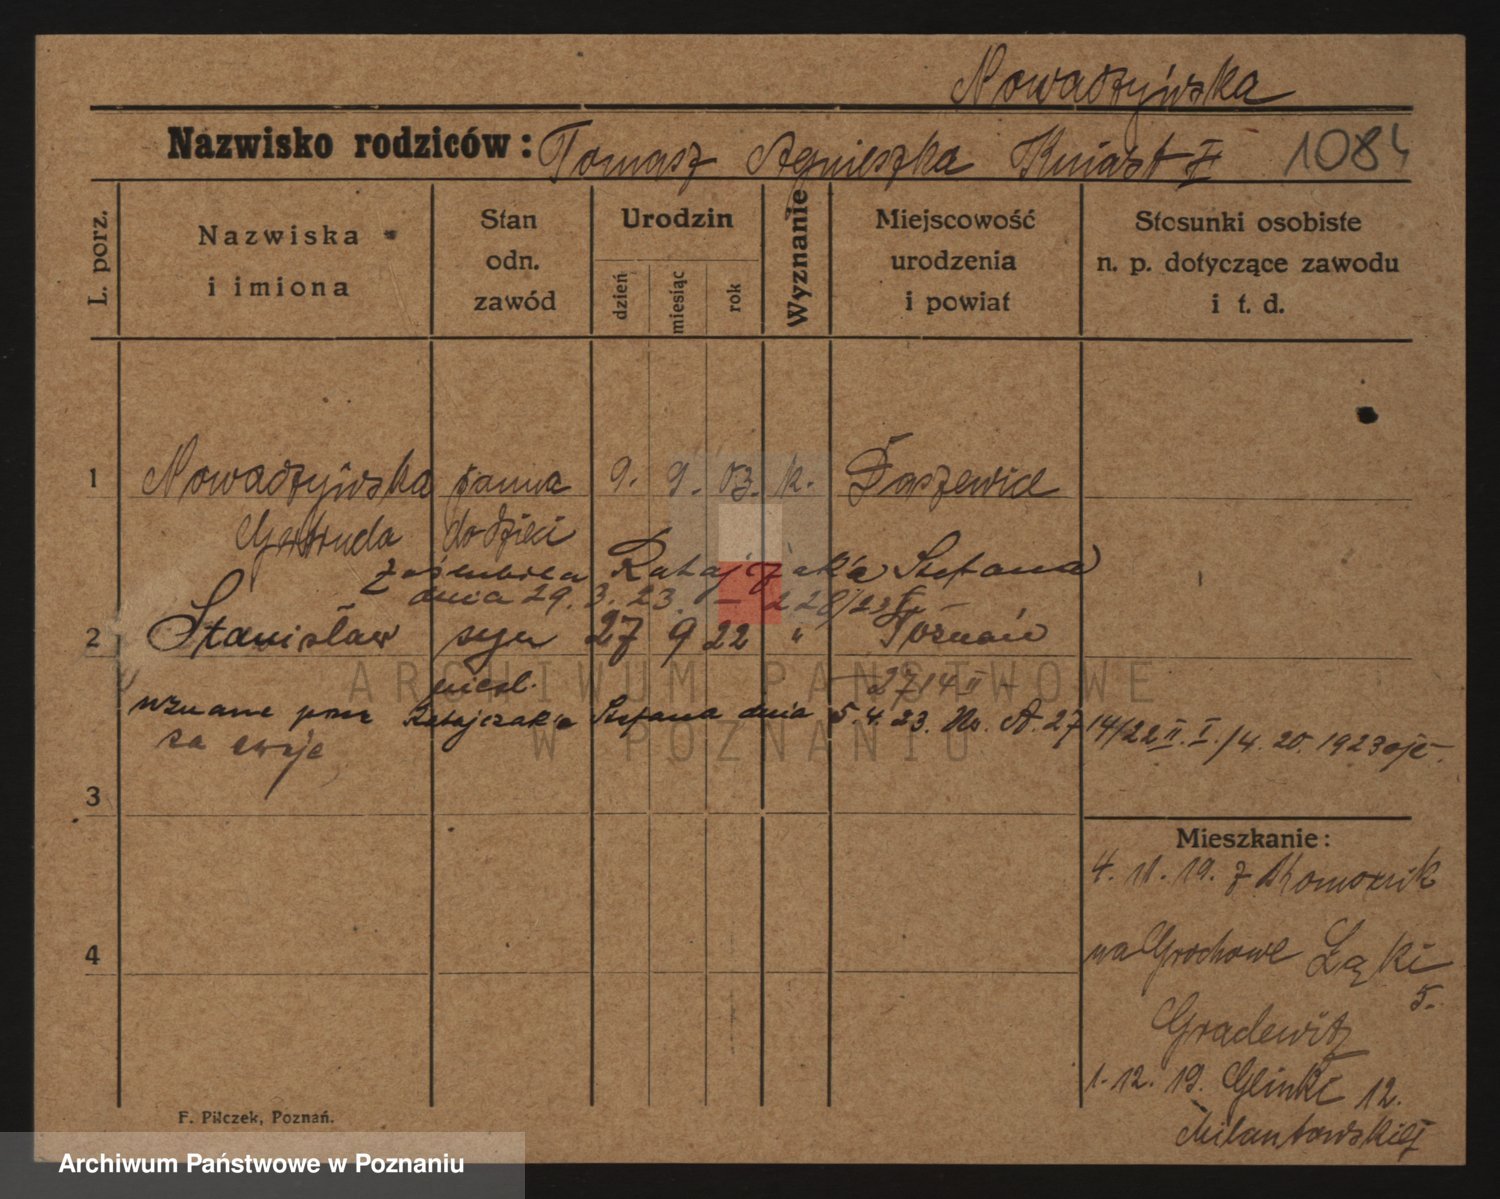 Nowaczyńska
Nazwisko rodziców: Tomasz Agnieszka Kniast
1084
L. porz.
Nazwiska i imiona
Stan odn. zawód
Urodzin
dzień
miesiąc
rok
Wyznanie
Miejscowość urodzenia i powiat
Stosunki osobiste n. p. dotyczące zawodu i t. d.
1 panna 9. 9. 03. k. Daszewice
Gertruda do dzieci
zaślubiła Ratajczaka Stefana
dnia 29. 3. 23. – 228/23
2 Stanisław syn 27 9 22 " Poznań
nieśl. 2714 II
uznane przez Ratajczaka Stefana dnia 5. 4. 23. No. A. 2714/22 II. I./4. 20. 1923
za swoje
3
4
Mieszkanie:
4. 11. 19. z Komornik
na Grochowe Łąki
5.
Gradewitz
1. 12. 19. Glinki 12.
Milantowskiej
F. Pilczek, Poznań.
ARCHIWUM PAŃSTWOWE
W POZNANIU
Archiwum Państwowe w Poznaniu